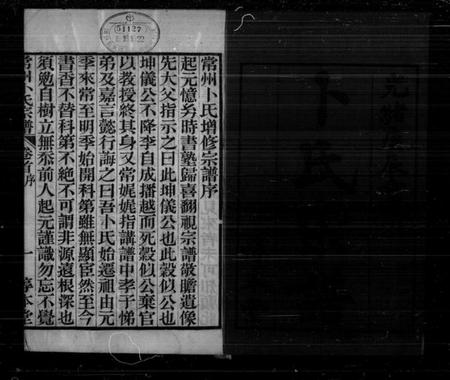 常州卜氏增修宗譜序
起元憶幼時書塾歸喜翻視宗譜敬瞻遺像
先大父指示之曰此坤儀公也此穀似公也
坤儀公不降李自成播越而死穀似公棄官
以教授終其身又常娓娓指講譜中孝子悌
弟及嘉言懿行誨之曰吾卜氏始遷祖由元
季來常至明季始開科第雖無顯宦然至今
書香不替科第不絶不可謂非源遠根深也
須勉自樹立無忝前人起元謹識勿忘不覺
常州卜氏宗譜 卷首序 一 惇本堂
51127
卜氏